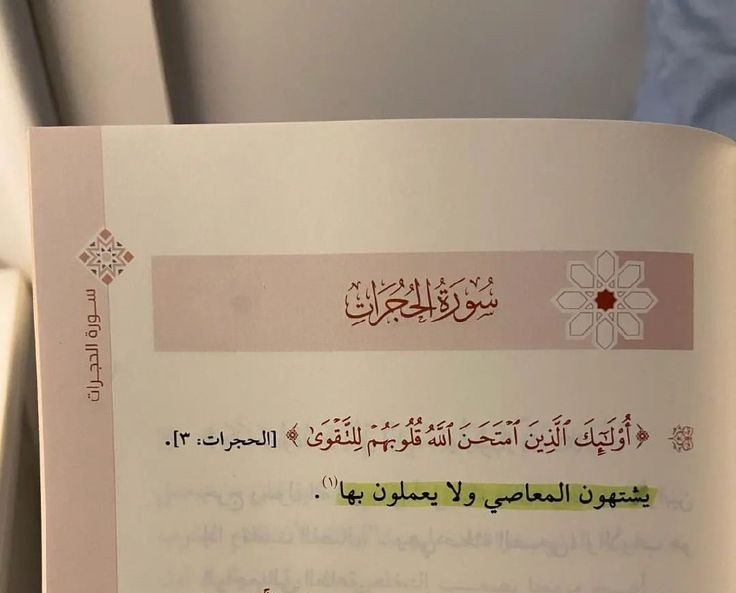 سُورَةُ الحُجُرَاتِ
سورة الحجرات
﴿ أُوْلَـٰٓئِكَ ٱلَّذِينَ ٱمْتَحَنَ ٱللَّهُ قُلُوبَهُمْ لِلتَّقْوَىٰ ﴾ [الحجرات: ٣].
يشتهون المعاصي ولا يعملون بها(١).